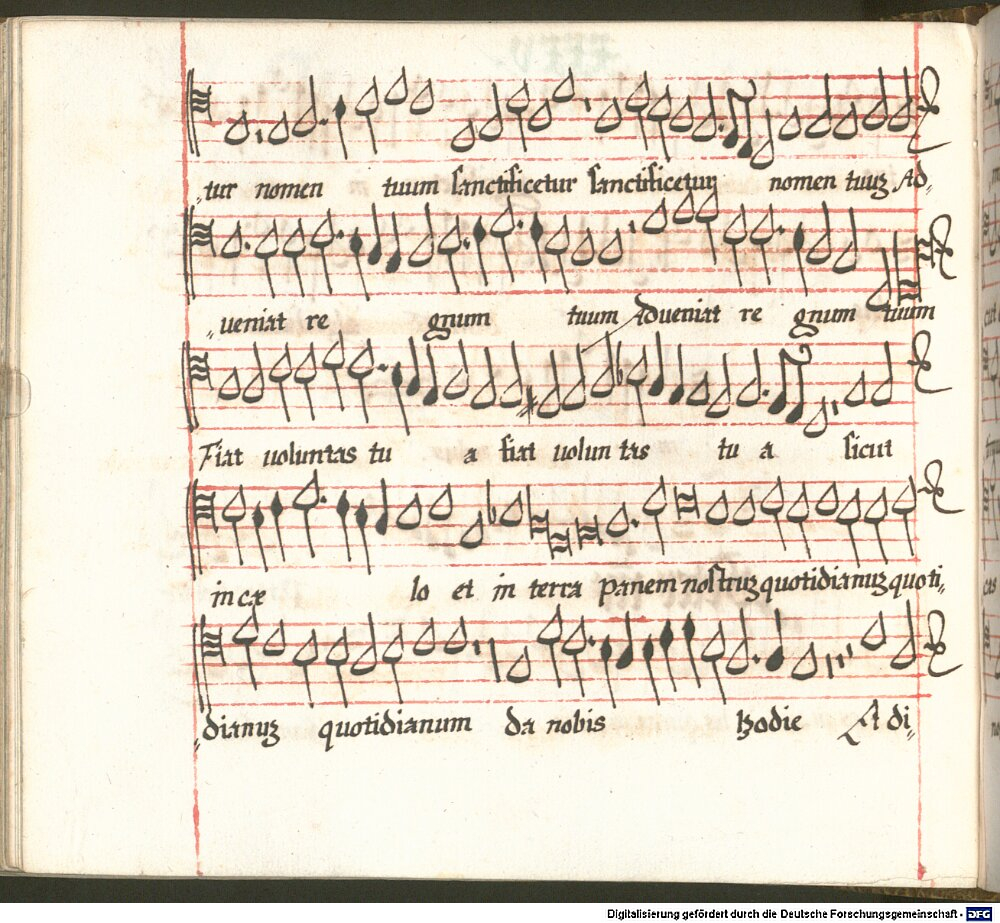 tur nomen tuum sanctificetur sanctificetur nomen tuuz Ad„
„ueniat re gnum tuum Adueniat re gnum tuum
Fiat uoluntas tu a fiat uolun tas tu a sicut
in cæ lo et in terra panem nostruz quotidianuz quoti„
„dianuz quotidianum da nobis hodie A di„
Digitalisierung gefördert durch die Deutsche Forschungsgemeinschaft - DFG